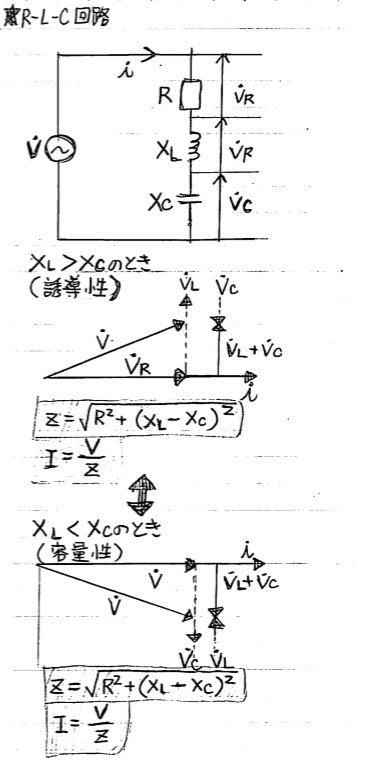 R-L-C回路
i
R
V̇R
V̇
XL
V̇R
XC
V̇C
XL>XCのとき
(誘導性)
V̇L V̇C
V̇
V̇L+V̇C
V̇R
i
Z=√R²+(XL-XC)²
I=V/Z
XL<XCのとき
(容量性)
i
V̇
V̇L+V̇C
V̇
V̇C V̇L
Z=√R²+(XL-XC)²
I=V/Z